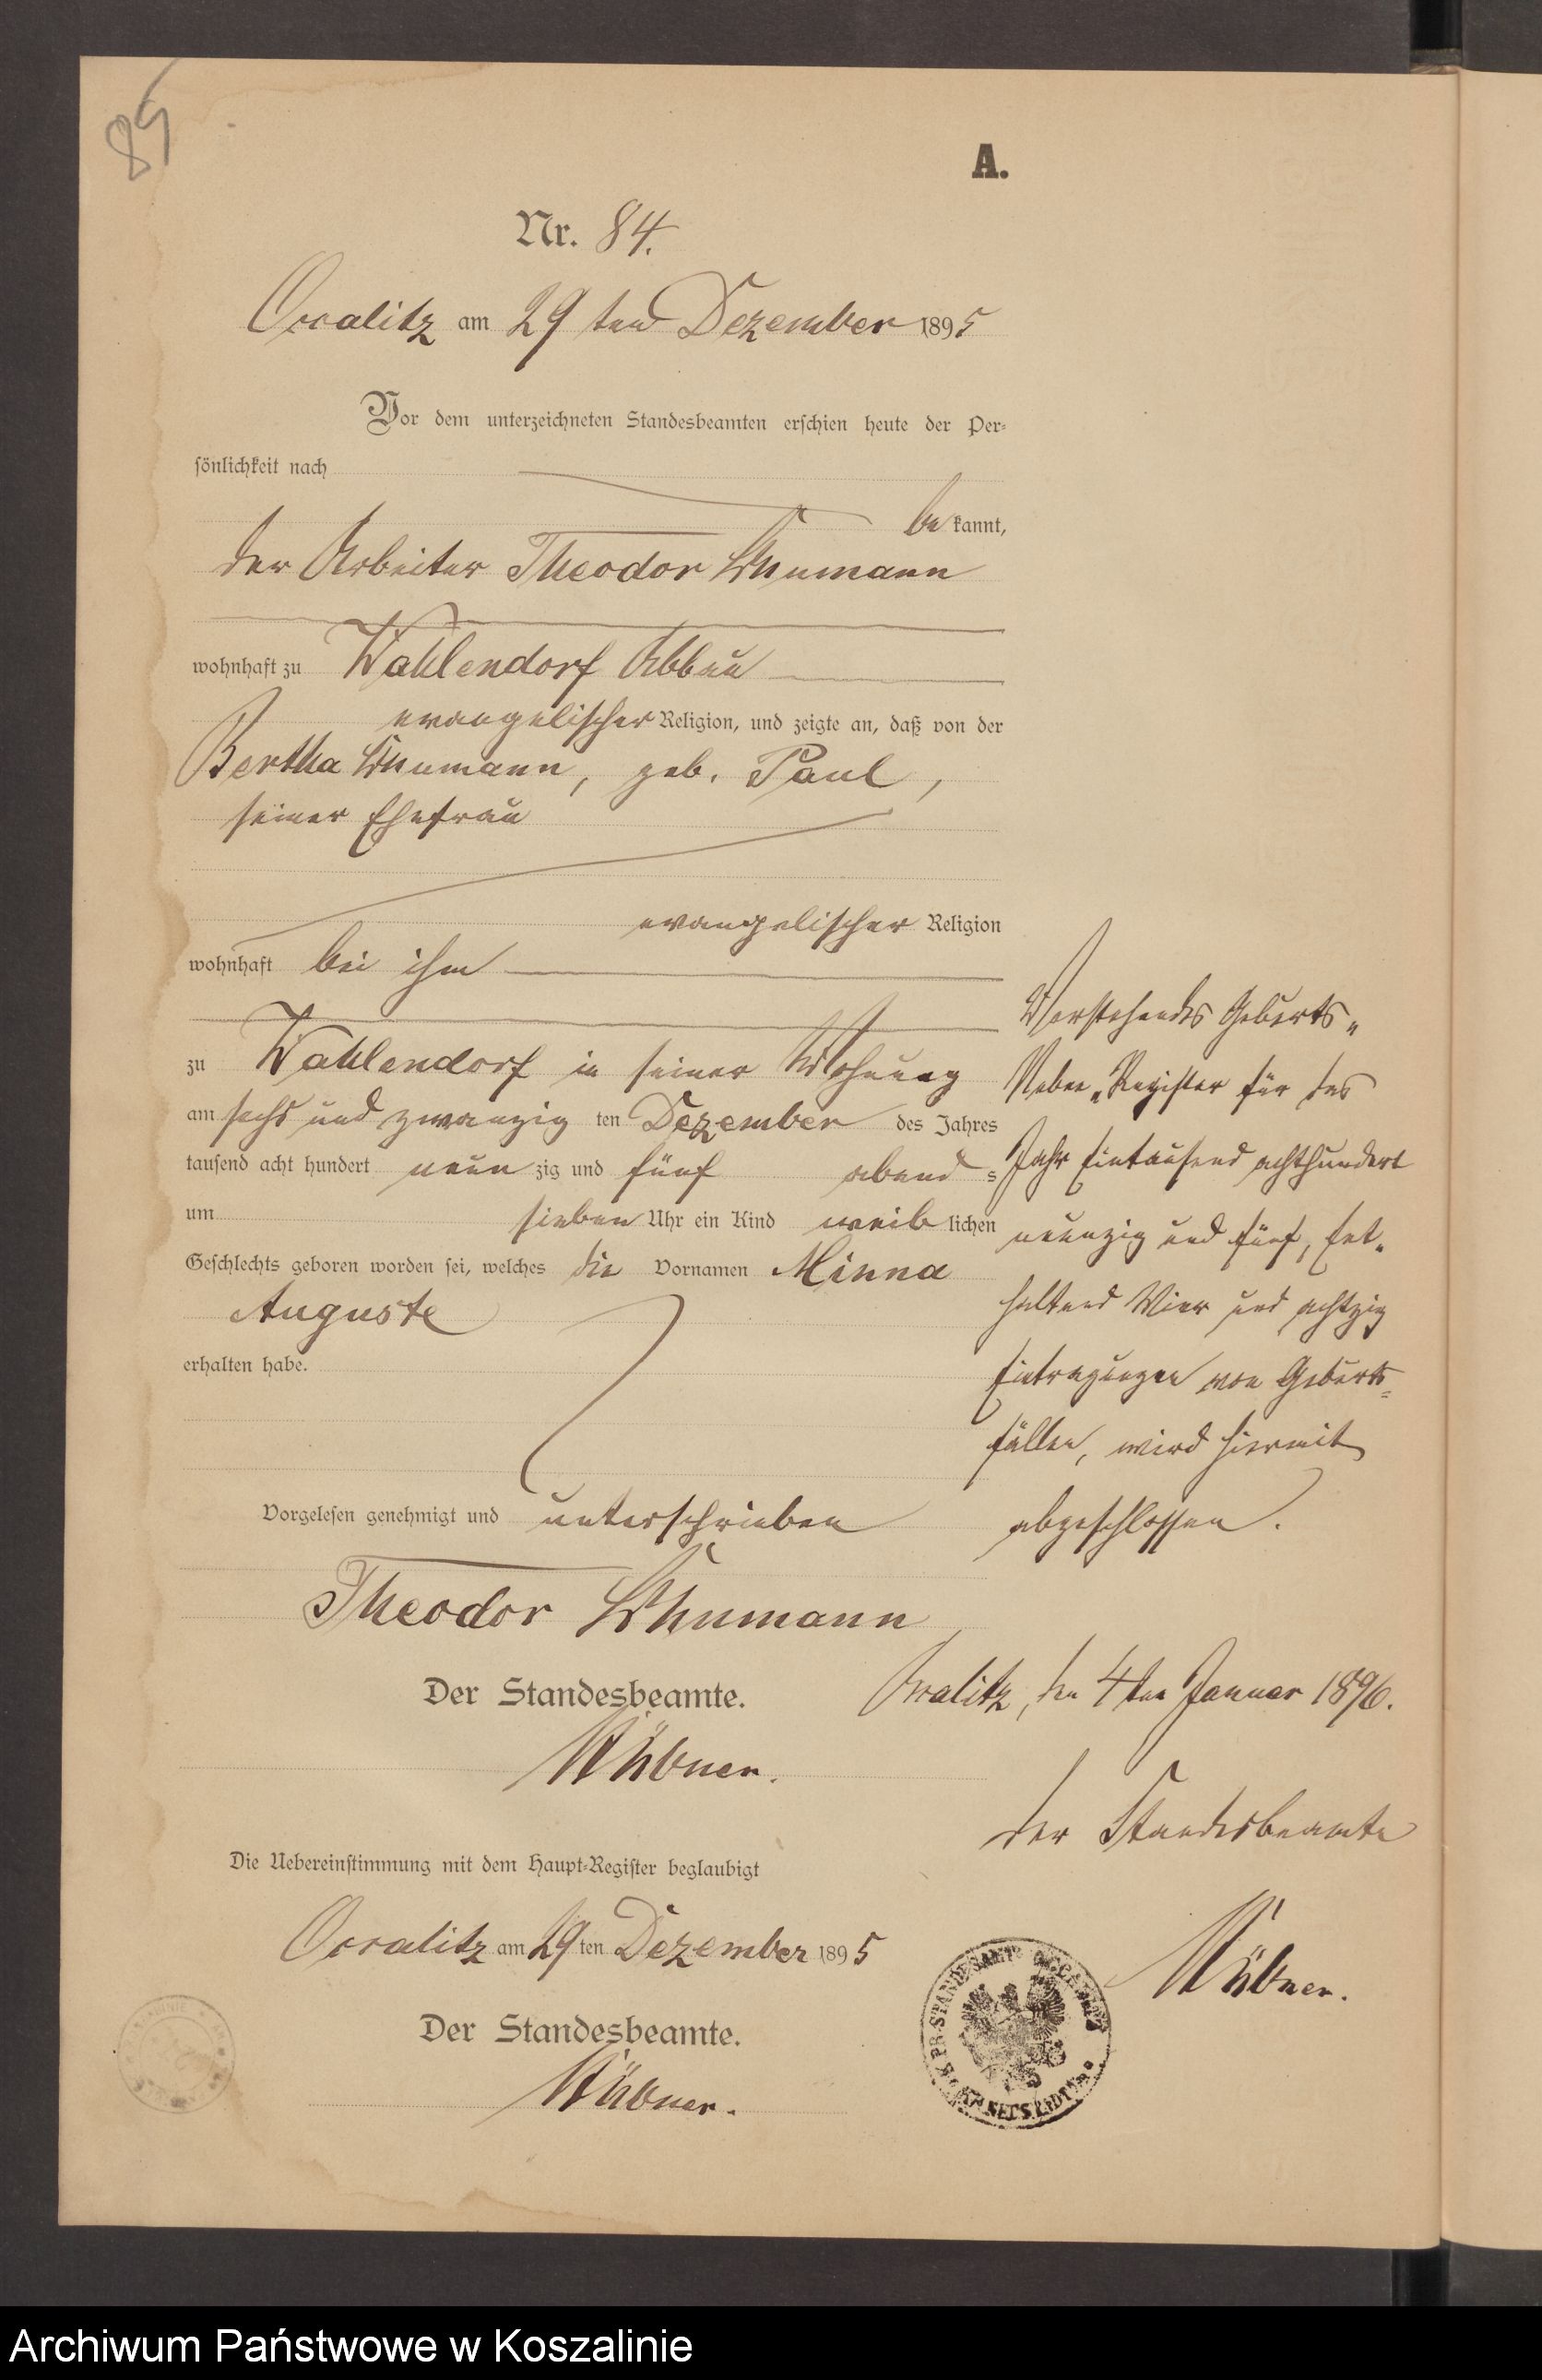 89
A.
Nr. 84.
Occalitz am 29 ten Dezember 1895
Vor dem unterzeichneten Standesbeamten erschien heute der Per-
sönlichkeit nach
be kannt,
der Arbeiter Theodor Schumann
wohnhaft zu Wahlendorf Abbau
evangelischer Religion, und zeigte an, daß von der
Bertha Schumann, geb. Paul,
seiner Ehefrau
evangelischer Religion
wohnhaft bei ihm
zu Wahlendorf in seiner Wohnung
am sechs und zwanzig ten Dezember des Jahres
tausend acht hundert neun zig und fünf abend s
um sieben Uhr ein Kind weib lichen
Geschlechts geboren worden sei, welches die Vornamen Minna
Auguste
erhalten habe.
Vorgelesen genehmigt und unterschrieben
Theodor Schumann
Der Standesbeamte.
Die Uebereinstimmung mit dem Haupt-Register beglaubigt
Occalitz am 29 ten Dezember 1895
Der Standesbeamte.
Vorstehendes Geburts-
Neben-Register für das
Jahr Eintausend achthundert
neunzig und fünf, Ent-
haltend Vier und achtzig
Eintragungen von Geburts-
fällen, wird hiermit
abgeschlossen.
Occalitz, den 4ten Januar 1896.
Der Standesbeamte
Archiwum Państwowe w Koszalinie